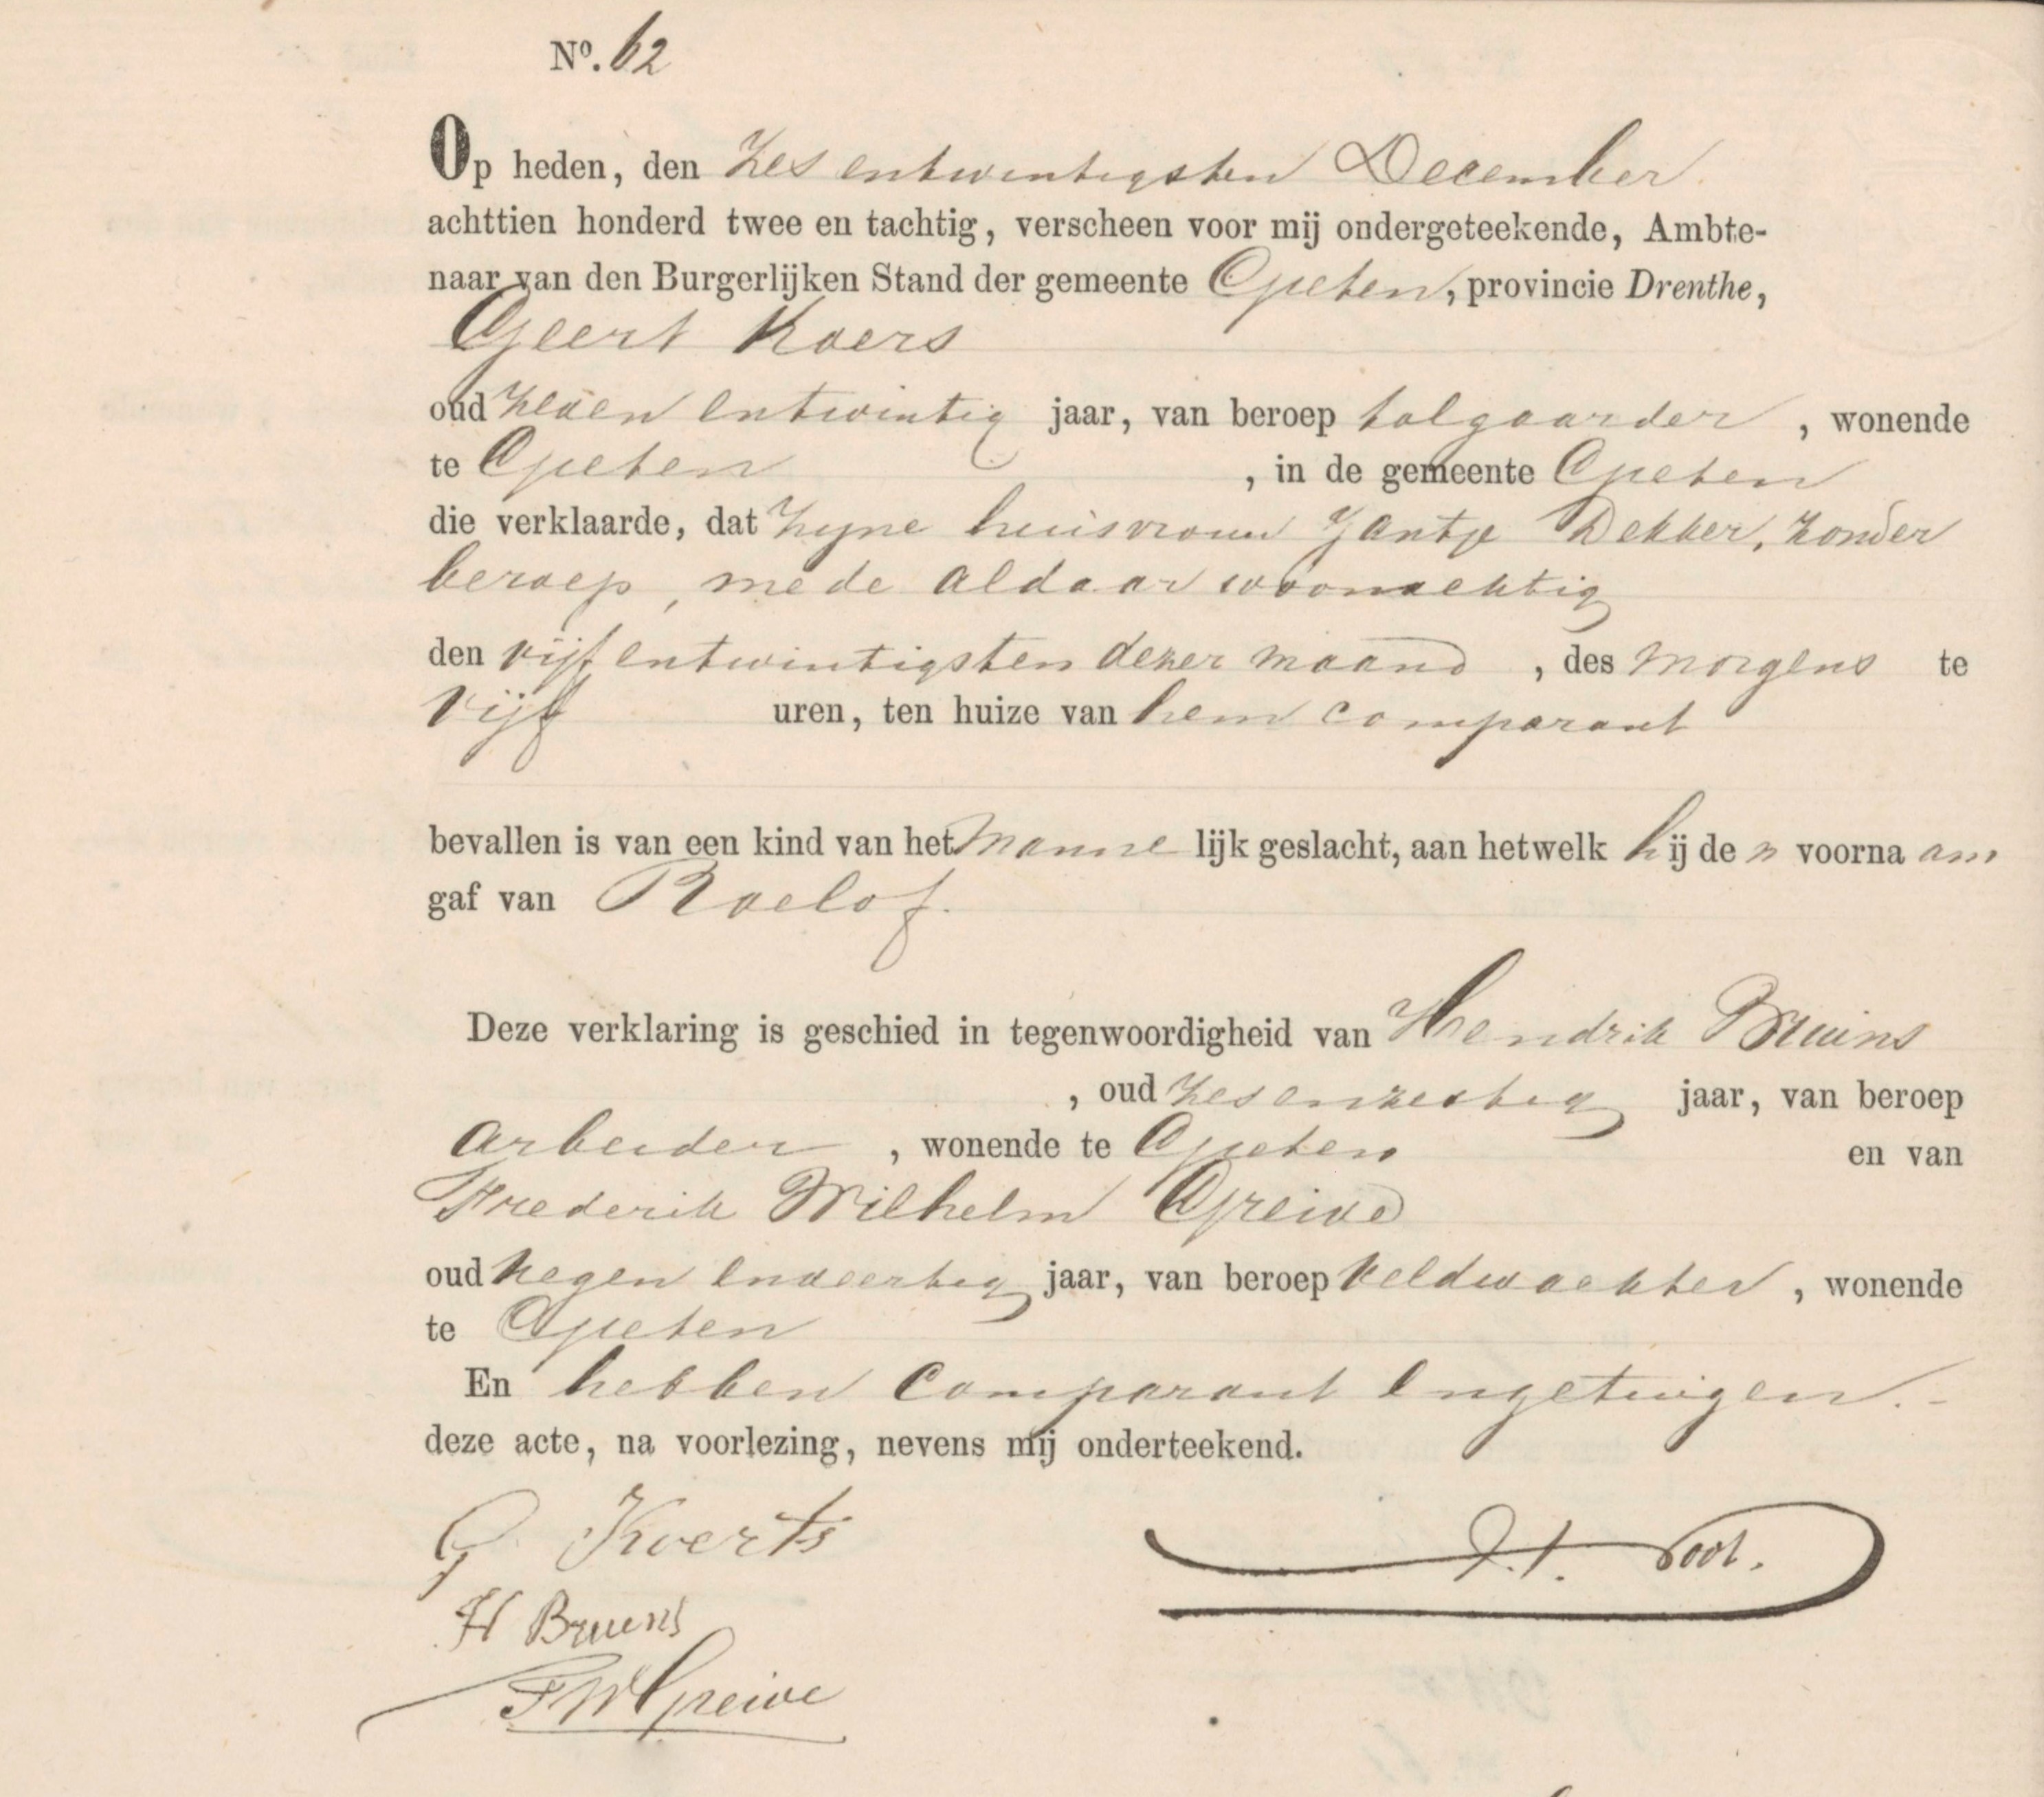 No. 62
Op heden, den zes entwintigsten December
achttien honderd twee en tachtig, verscheen voor mij ondergeteekende, Ambte-
naar van den Burgerlijken Stand der gemeente Gieten, provincie Drenthe,
Geert Koers
oud zeven entwintig jaar, van beroep tolgaarder, wonende
te Gieten, in de gemeente Gieten
die verklaarde, dat zijne huisvrouw Jantje Dekker, zonder
beroep, mede aldaar woonachtig
den vijf entwintigsten dezer maand, des morgens te
vijf uren, ten huize van hem comparant
bevallen is van een kind van het manne lijk geslacht, aan hetwelk hij de n voorna am
gaf van Roelof.
Deze verklaring is geschied in tegenwoordigheid van Hendrik Bruins
, oud zesenzestig jaar, van beroep
arbeider, wonende te Gieten en van
Frederik Wilhelm Greive
oud negen endertig jaar, van beroep veldwachter, wonende
te Gieten
En hebben comparant en getuigen.-
deze acte, na voorlezing, nevens mij onderteekend.
G Koerts
H Bruens
FW Greive